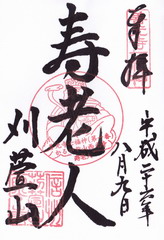 奉拝
平成二十六年
八月九日
寿老人
刈萱山